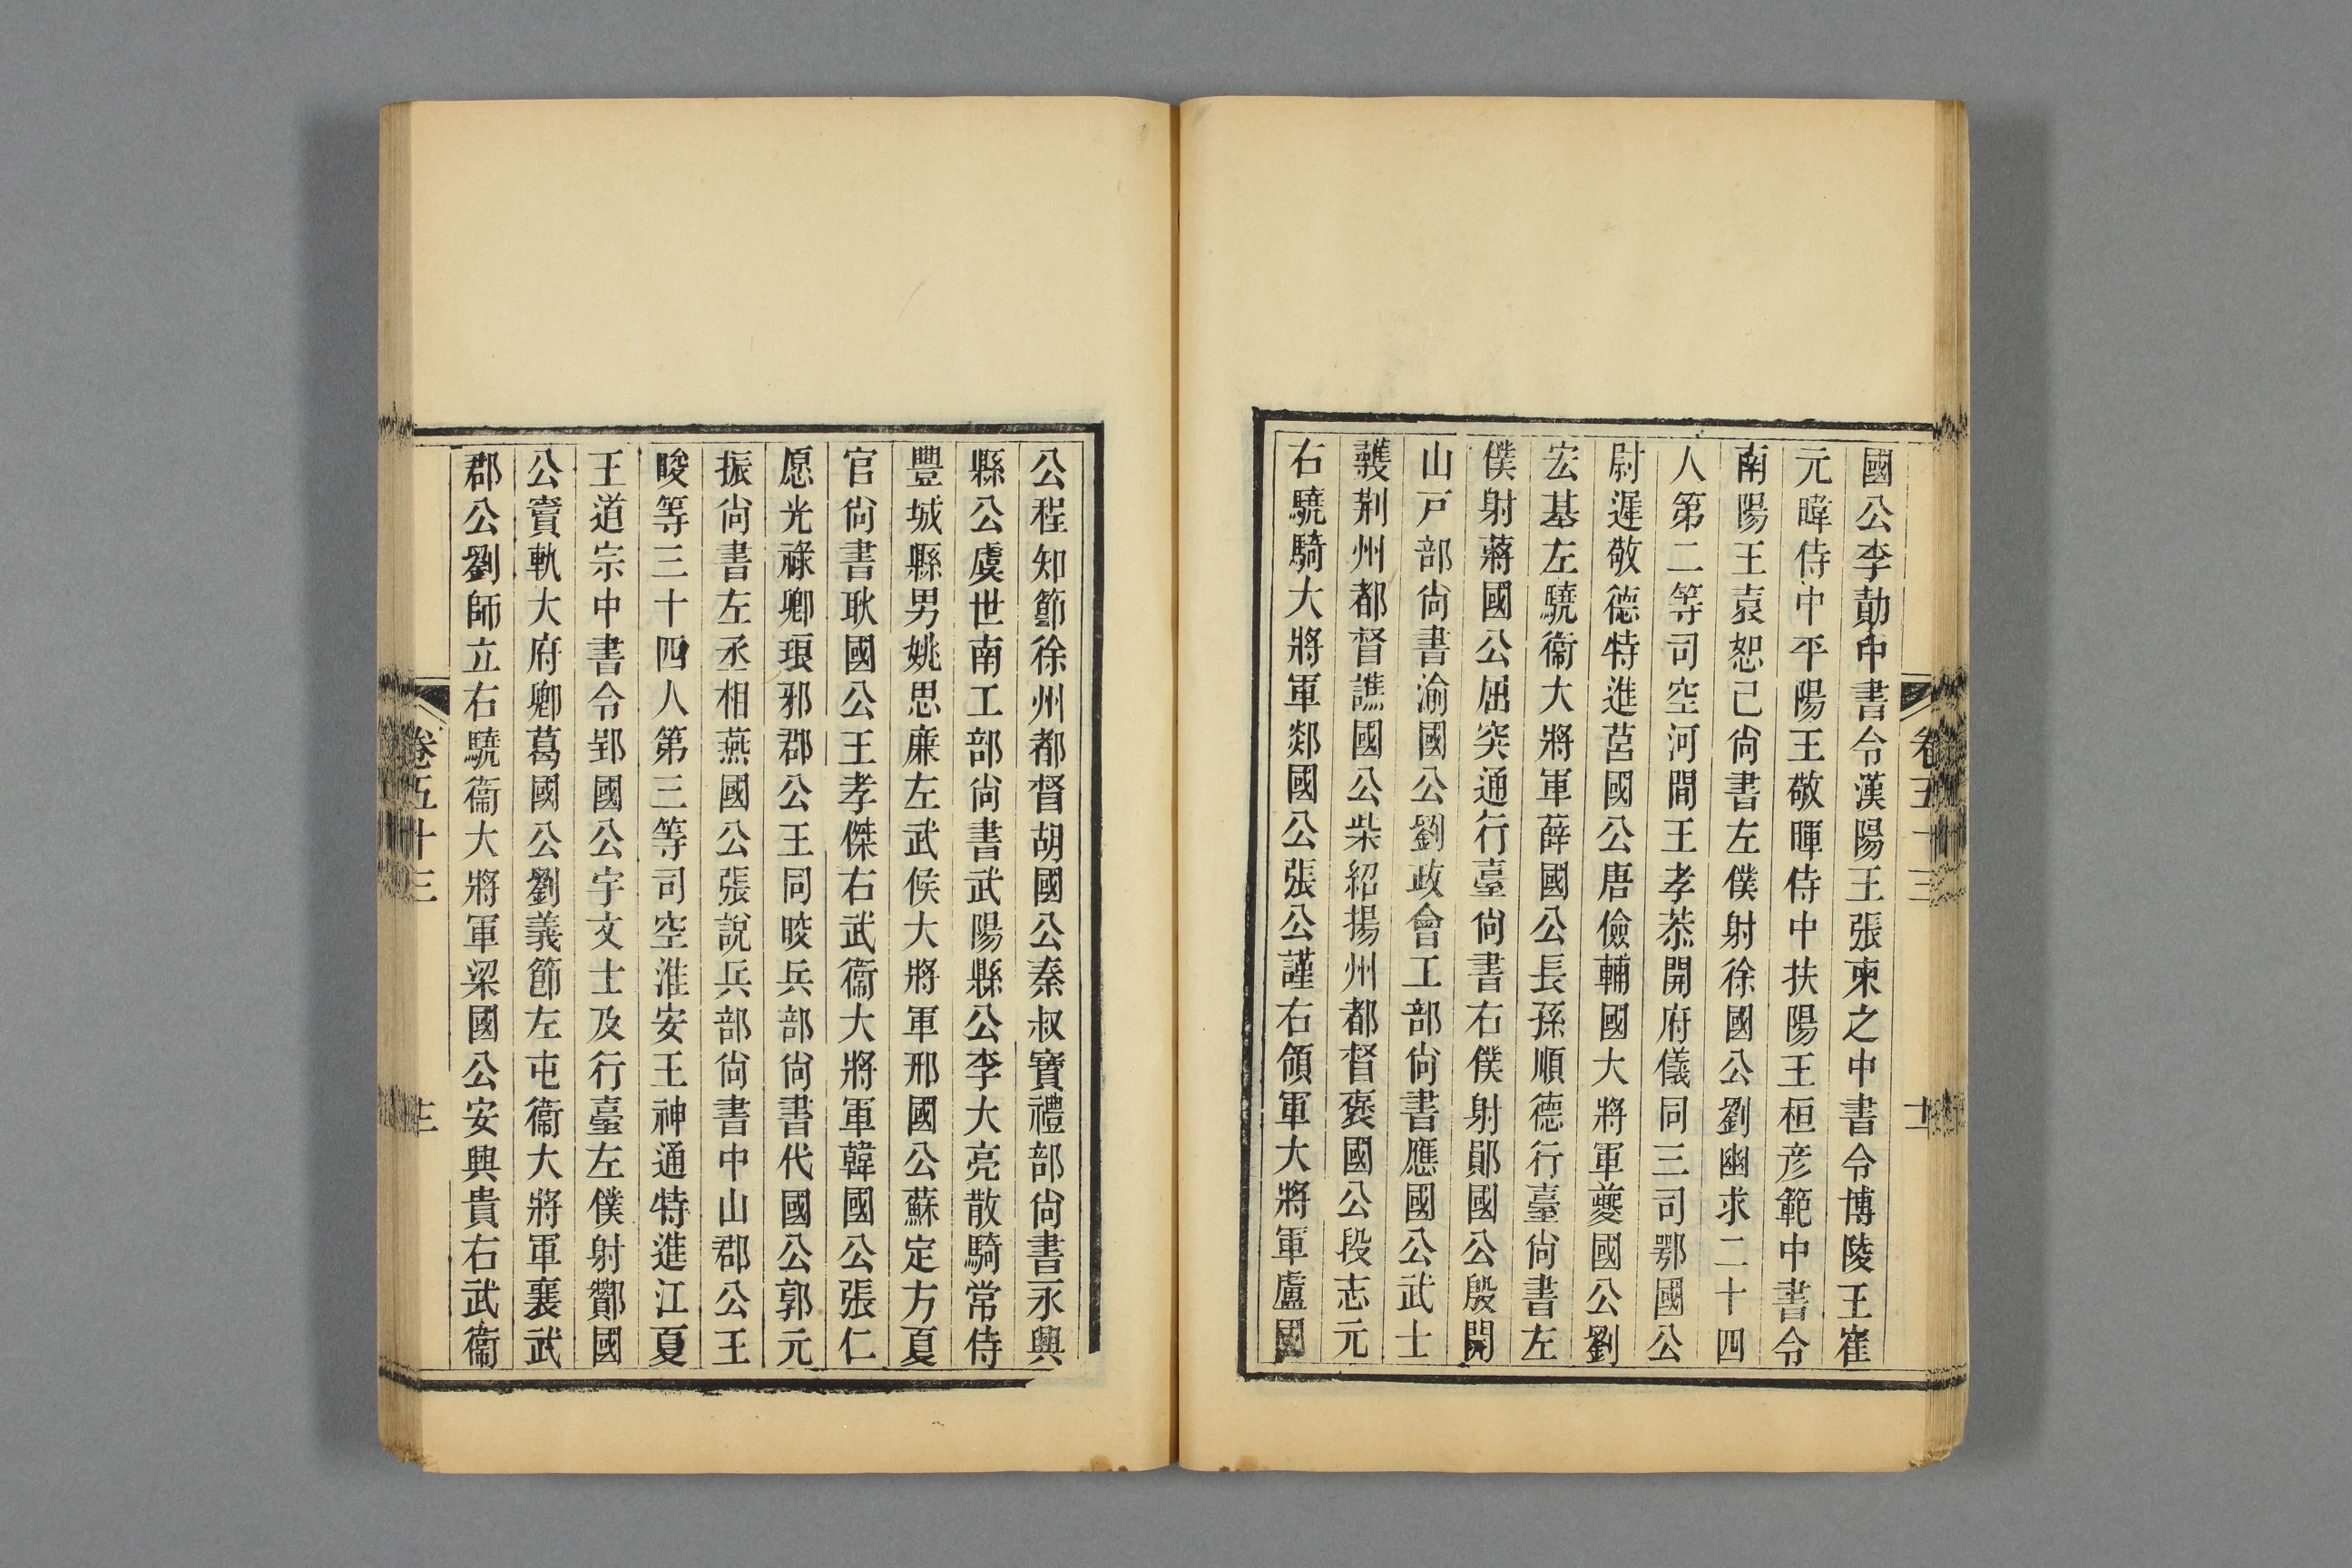 國公李勣中書令漢陽王張柬之中書令博陵王崔
元暐侍中平陽王敬暉侍中扶陽王桓彥範中書令
南陽王袁恕己尙書左僕射徐國公劉幽求二十四
人第二等司空河間王孝恭開府儀同三司鄂國公
尉遲敬德特進莒國公唐儉輔國大將軍夔國公劉
宏基左驍衞大將軍薛國公長孫順德行臺尙書左
僕射蔣國公屈突通行臺尙書右僕射鄖國公殷開
山戸部尙書渝國公劉政會工部尙書應國公武士
彠荆州都督譙國公柴紹揚州都督褒國公段志元
右驍騎大將軍郯國公張公謹右領軍大將軍盧國
公程知節徐州都督胡國公秦叔寶禮部尙書永興
縣公虞世南工部尙書武陽縣公李大亮散騎常侍
豐城縣男姚思廉左武候大將軍邢國公蘇定方夏
官尙書耿國公王孝傑右武衞大將軍韓國公張仁
愿光祿卿琅邪郡公王同晈兵部尙書代國公郭元
振尙書左丞相燕國公張說兵部尙書中山郡公王
晙等三十四人第三等司空淮安王神通特進江夏
王道宗中書令郢國公宇文士及行臺左僕射酇國
公竇軌大府卿葛國公劉義節左屯衞大將軍襄武
郡公劉師立右驍衞大將軍梁國公安興貴右武衞
卷五十三